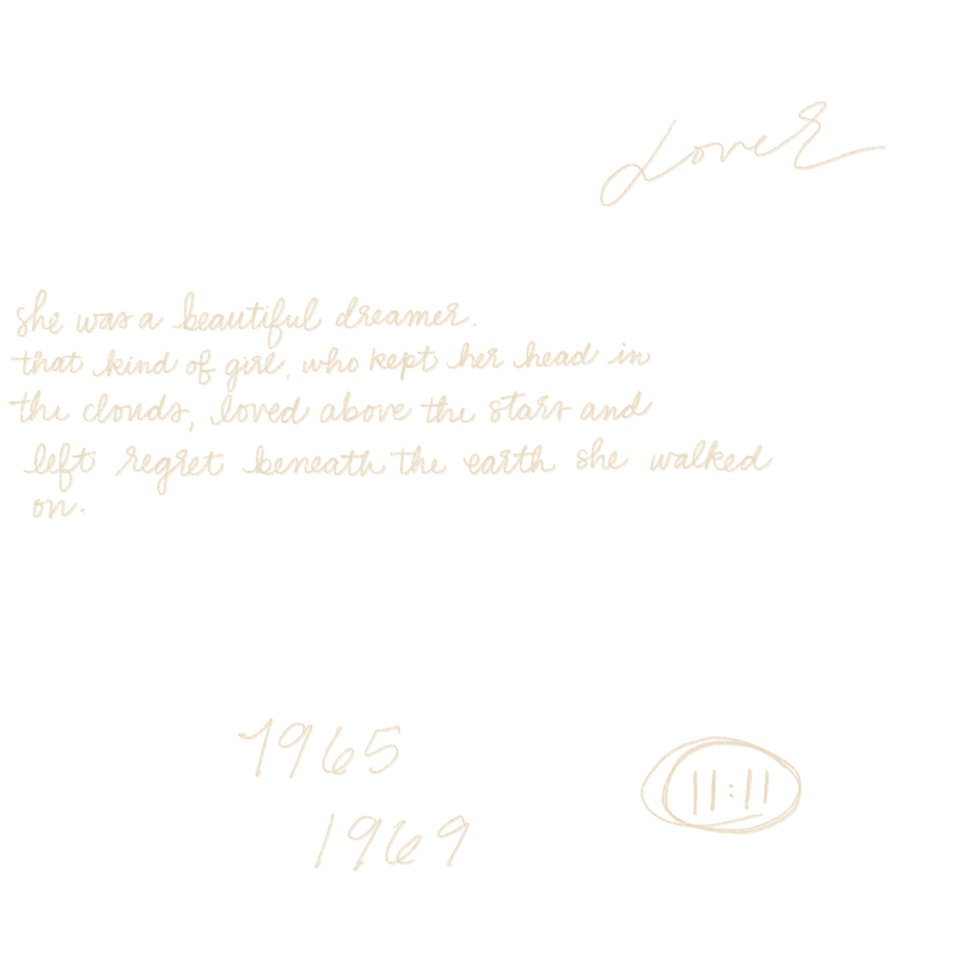 Lover
she was a beautiful dreamer.
that kind of girl, who kept her head in
the clouds, loved above the stars and
left regret beneath the earth she walked
on.
1965
1969
11:11